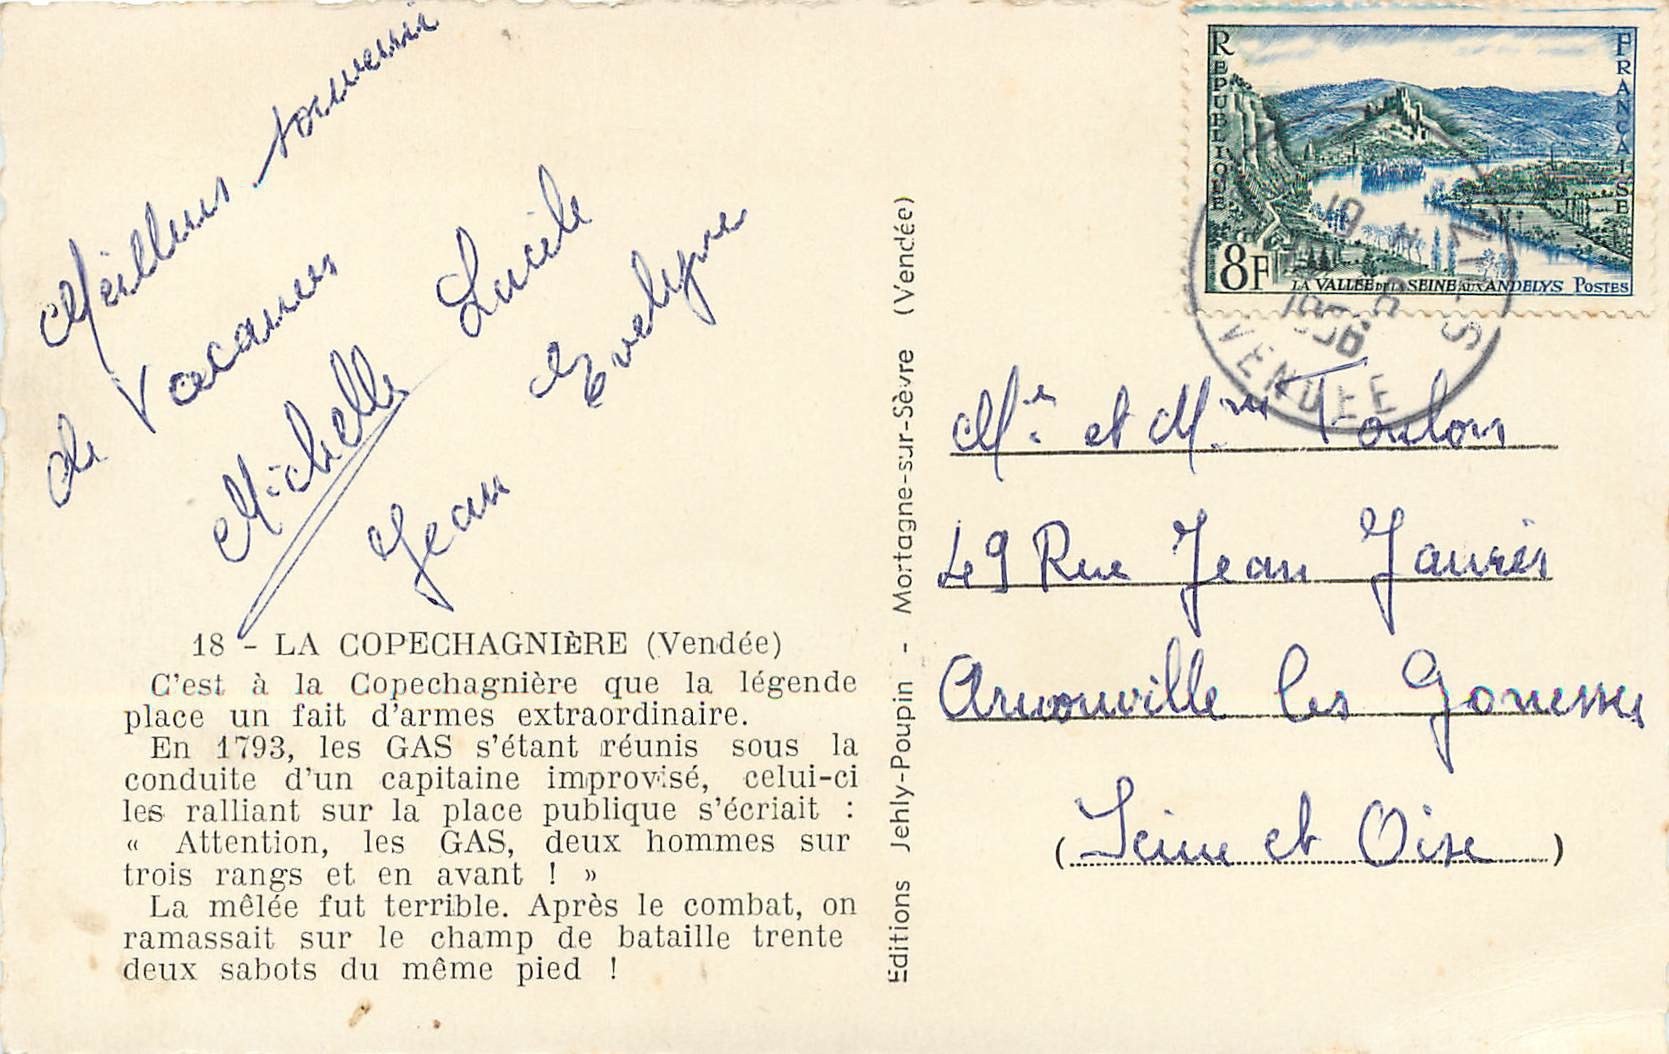 Meilleurs souvenirs
de Vacances
Michelle Lucile
Jean Evelyne
18 - LA COPECHAGNIÈRE (Vendée)
C'est à la Copechagnière que la légende
place un fait d'armes extraordinaire.
En 1793, les GAS s'étant réunis sous la
conduite d'un capitaine improvisé, celui-ci
les ralliant sur la place publique s'écriait :
« Attention, les GAS, deux hommes sur
trois rangs et en avant ! »
La mêlée fut terrible. Après le combat, on
ramassait sur le champ de bataille trente
deux sabots du même pied !
Editions Jehly-Poupin - Mortagne-sur-Sèvre (Vendée)
REPUBLIQUE FRANCAISE
8F
LA VALLEE DE LA SEINE AUX ANDELYS POSTES
1956
VENDEE
Mr et Mme Toulon
49 Rue Jean Jaurès
Arnouville les Gonesses
(Seine et Oise)